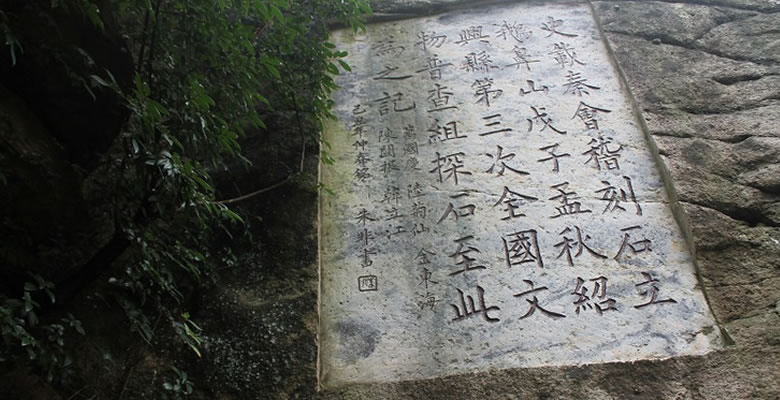 史載秦會稽刻石立
鵝鼻山戊子孟秋紹
興縣第三次全國文
物普查組探石至此
為之記
葛國慶 陸菊仙 金東海
陳關根 韓立江
己丑仲春銘 朱非書